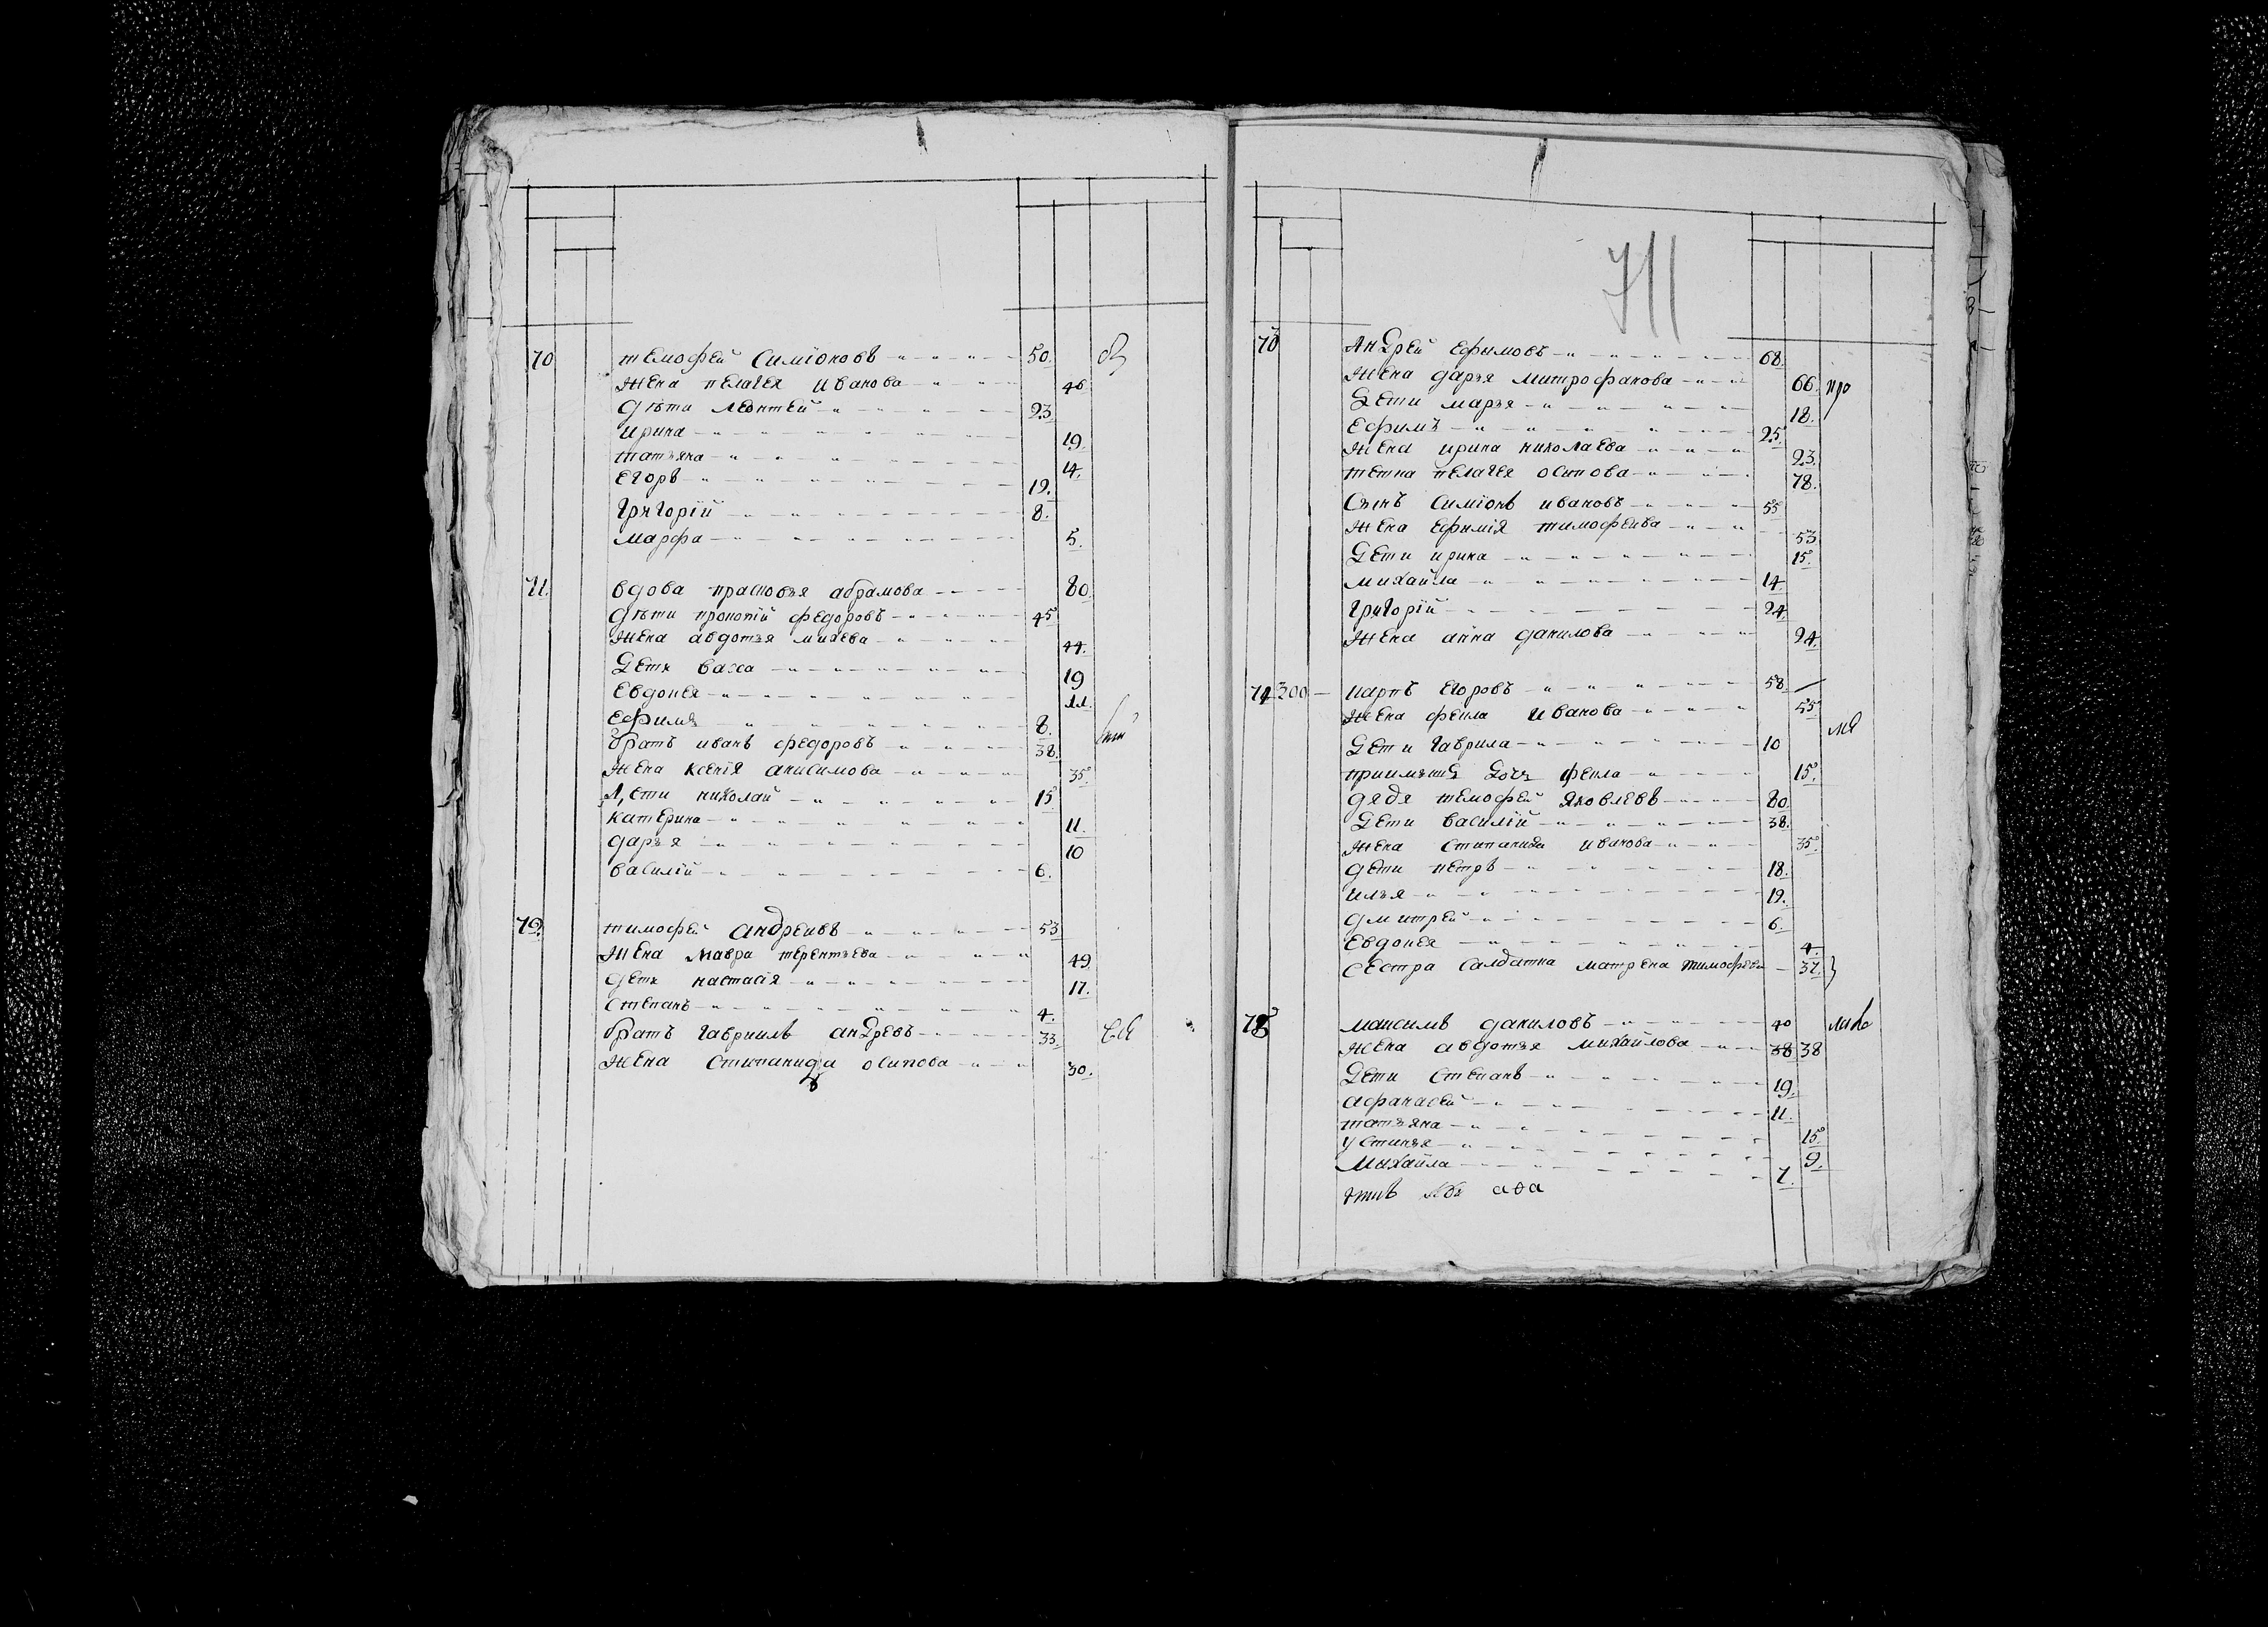 70 тимофей Симіоновъ 50.
жена пелагея иванова 46
дѣти леонтей 23
ирина 19.
татьяна 14.
егоръ 12.
григорій 8.
марфа 5.
71. вдова прасковья абрамова 80.
дѣти прокопій федоровъ 45
жена авдотья михева 44.
дети васса 19
Евдокея 11.
Ефимъ 8.
братъ иванъ федоровъ 38.
жена ксенія анисимова 35
дети николай 15
катерина 11.
дарья 10
василій 6.
72. тимофей андреивъ 53
жена мавра терентьева 49
дети настасія 17.
степанъ 4.
братъ гавриилъ андревъ 33.
жена стипанида осипова 30.
711
73 Андрей ефимовъ 68.
жена дарья митрофанова 66. про
дети марья 18.
ефимъ 25.
жена ирина николаева 23.
тетка пелагея осипова 78.
сынъ симіонъ ивановъ 55
жена ефимія тимофеива 53
дети ирина 15.
михайла 14.
григорій 24.
жена анна данилова 24.
74 300 карпъ егоровъ 58.
жена фекла иванова 55
дети гаврила 10
дочь фекла 15.
дядя тимофей яковлевъ 80.
дети василій 38.
жена стипанида иванова 35
дети петръ 18.
илья 12.
дмитрей 6.
Евдокея 4.
сестра салдатка матрена тимофеева 37.
75 максимъ даниловъ 40
жена авдотья михайлова 38 38
дети степанъ 19.
афанасей 11.
татьяна 15.
устинья 9.
михайла 7.